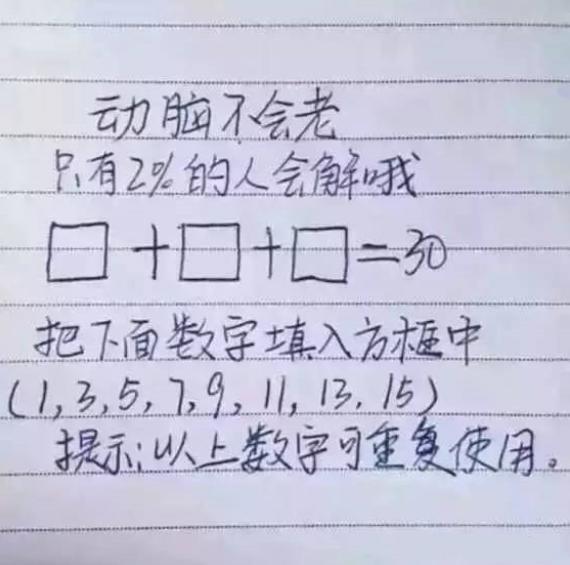 动脑不会老
只有2%的人会解哦
□+□+□=30
把下面数字填入方框中
(1,3,5,7,9,11,13,15)
提示:以上数字可重复使用。